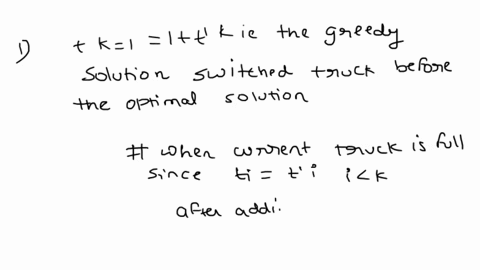 1) t k=1 = 1+t' k ie the greedy
solution switched truck before
the optimal solution
# when current truck is full
since ti = t' i i<k
after addi.